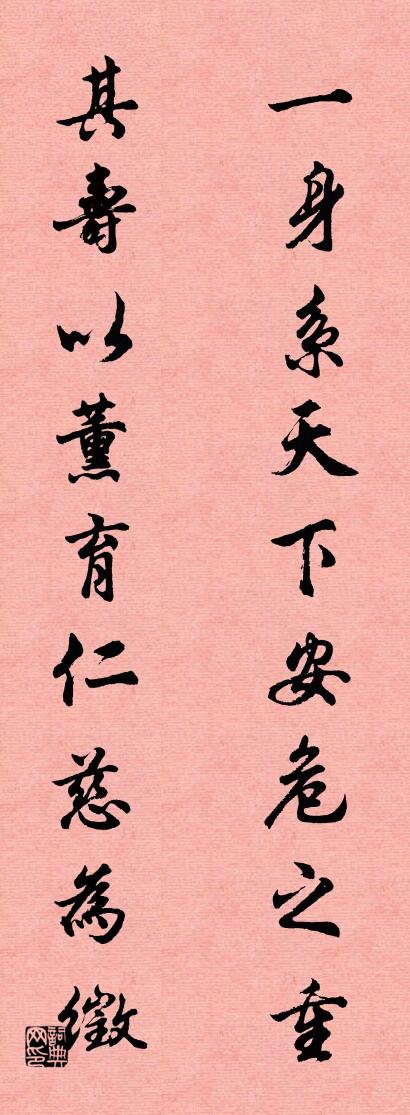 一身系天下安危之重
其壽以薰育仁慈為徵
詞典网印